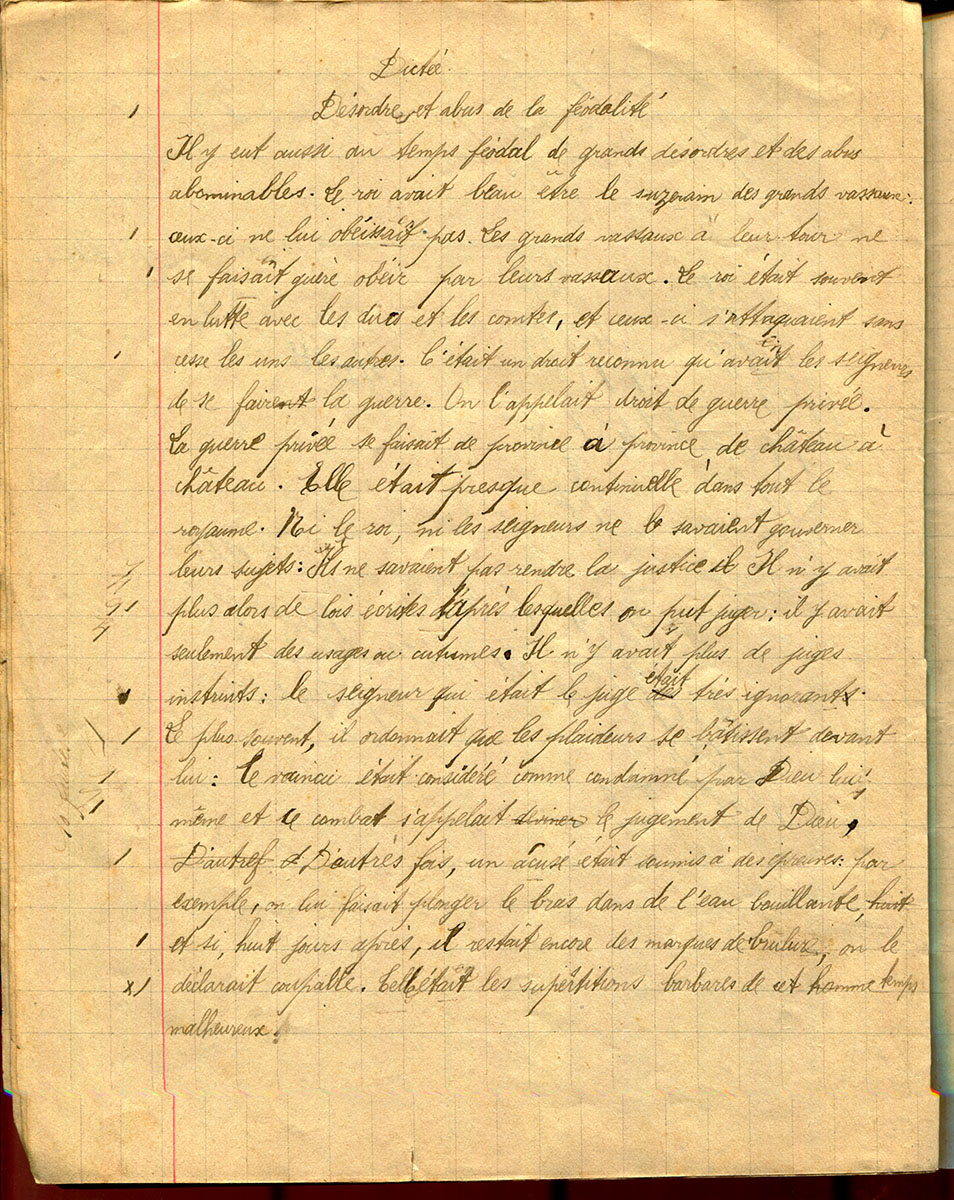 Dictée.
Désordre, et abus de la féodalité
Il y eut aussi au temps féodal de grands désordres et des abus
abominables. Le roi avait beau être le suzerain des grands vassaux:
ceux-ci ne lui obéissait pas. Les grands vassaux à leur tour ne
se faisait guère obéir par leurs vassaux. Le roi était souvent
en lutte avec les ducs et les comtes, et ceux-ci s'attaquaient sans
cesse les uns les autres. C'était un droit reconnu qu'avait les seigneurs
de se fairent la guerre. On l'appelait droit de guerre privée.
La guerre privée se faisait de province à province, de château à
château. Elle était presque continuelle dans tout le
royaume. Ni le roi, ni les seigneurs ne savaient gouverner
leurs sujets: Ils ne savaient pas rendre la justice il Il n'y avait
plus alors de lois écrites d'après lesquelles on put juger: il y avait
seulement des usages ou cutumes. Il n'y avait plus de juges
instruits: le seigneur qui était le juge était très ignorants.
Le plus souvent, il ordonnait que les plaideurs se bâtissent devant
lui: le vaincu était considéré comme condamné par Dieu lui-
même et ce combat s'appelait le jugement de Dieu,
D'autref d D'autrés fois, un acusé était soumis à des épreuves: par
exemple, on lui faisait plonger le bras dans de l'eau bouillante, huit
et si, huit jours après, il restait encore des marques de brulure, on le
déclarait coupable. Telle était les supertitions barbares de cet homme temps
malheureux.